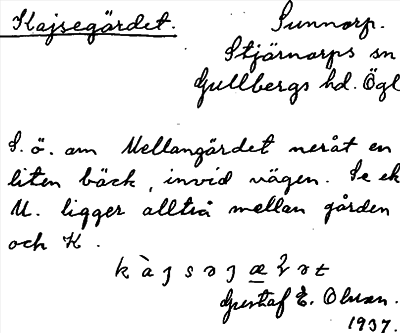 Kajsegärdet. Sunnorp.
Stjärnorps sn
Gullbergs hd. Ögl
S. ö. om Mellangärdet neråt en
liten bäck, invid vägen. Se ek
M. ligger alltså mellan gården
och K.
Gustaf E. Olsson.
1937.